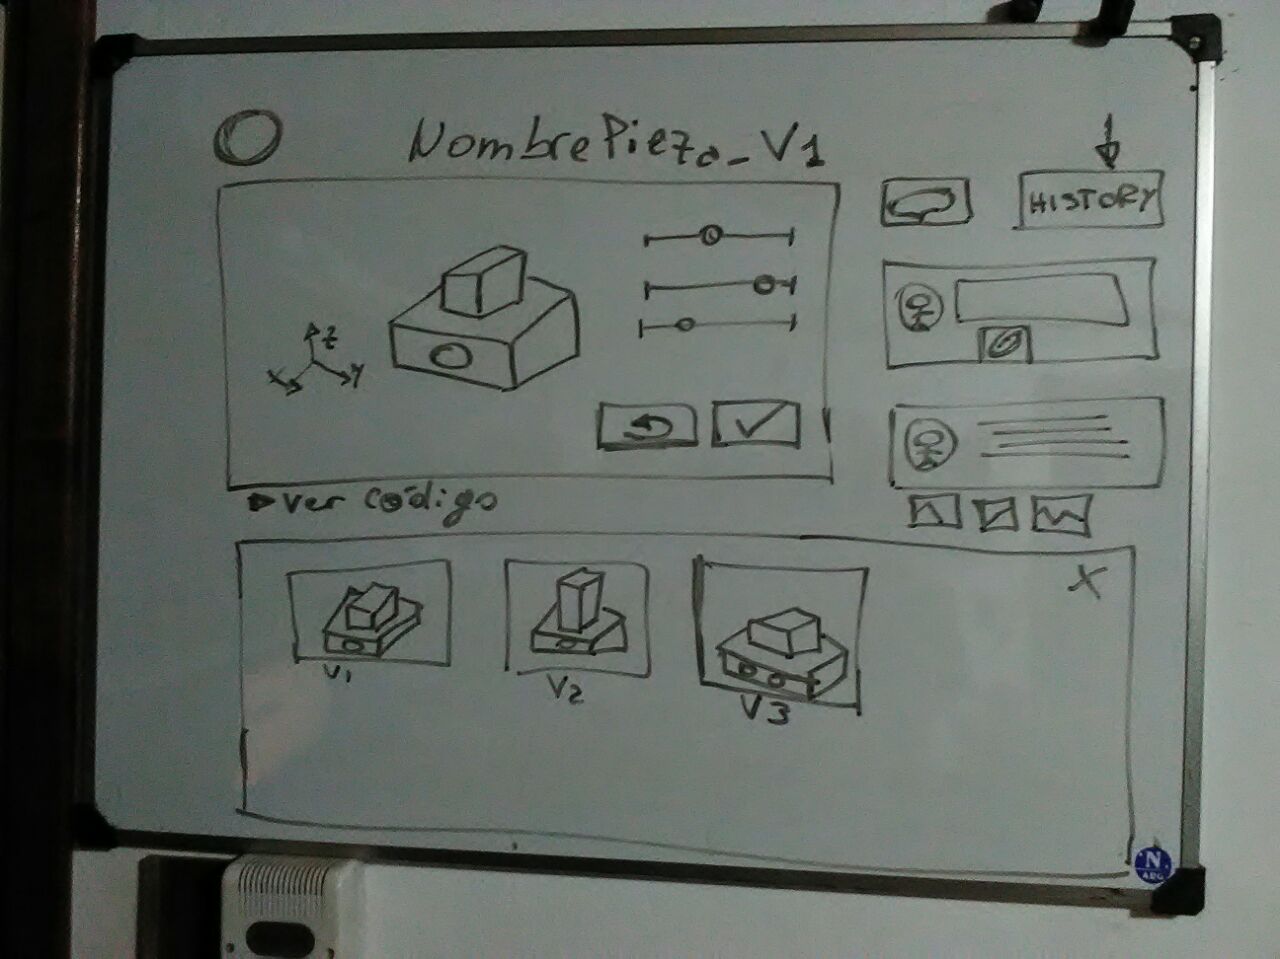 NombrePieza_V1
HISTORY
Z
X
Y
▶ Ver código
X
V1
V2
V3
N
ARG